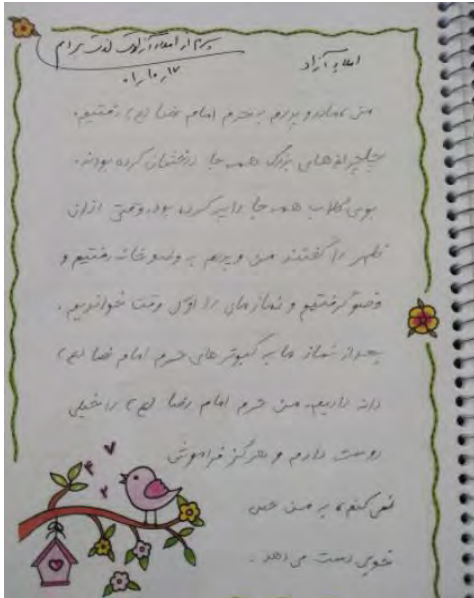 پسرم از املاء آزادت لذت بردم
املاء آزاد
۱۷ر۱۰ر۰۱
من، مادر و پدرم به حرم امام رضا (ع) رفتیم.
چلچراغ‌های بزرگ همه جا را روشن کرده بودند.
بوی گلاب همه جا را پر کرده بود. وقتی اذان
ظهر را گفتند من و پدرم به وضوخانه رفتیم و
وضو گرفتیم و نمازمان را اول وقت خواندیم.
بعد از نماز ما به کبوترهای حرم امام رضا (ع)
دانه دادیم. من حرم امام رضا (ع) را خیلی
دوست دارم و هرگز فراموش
نمی کنم، به من حس
خوبی دست می دهد.